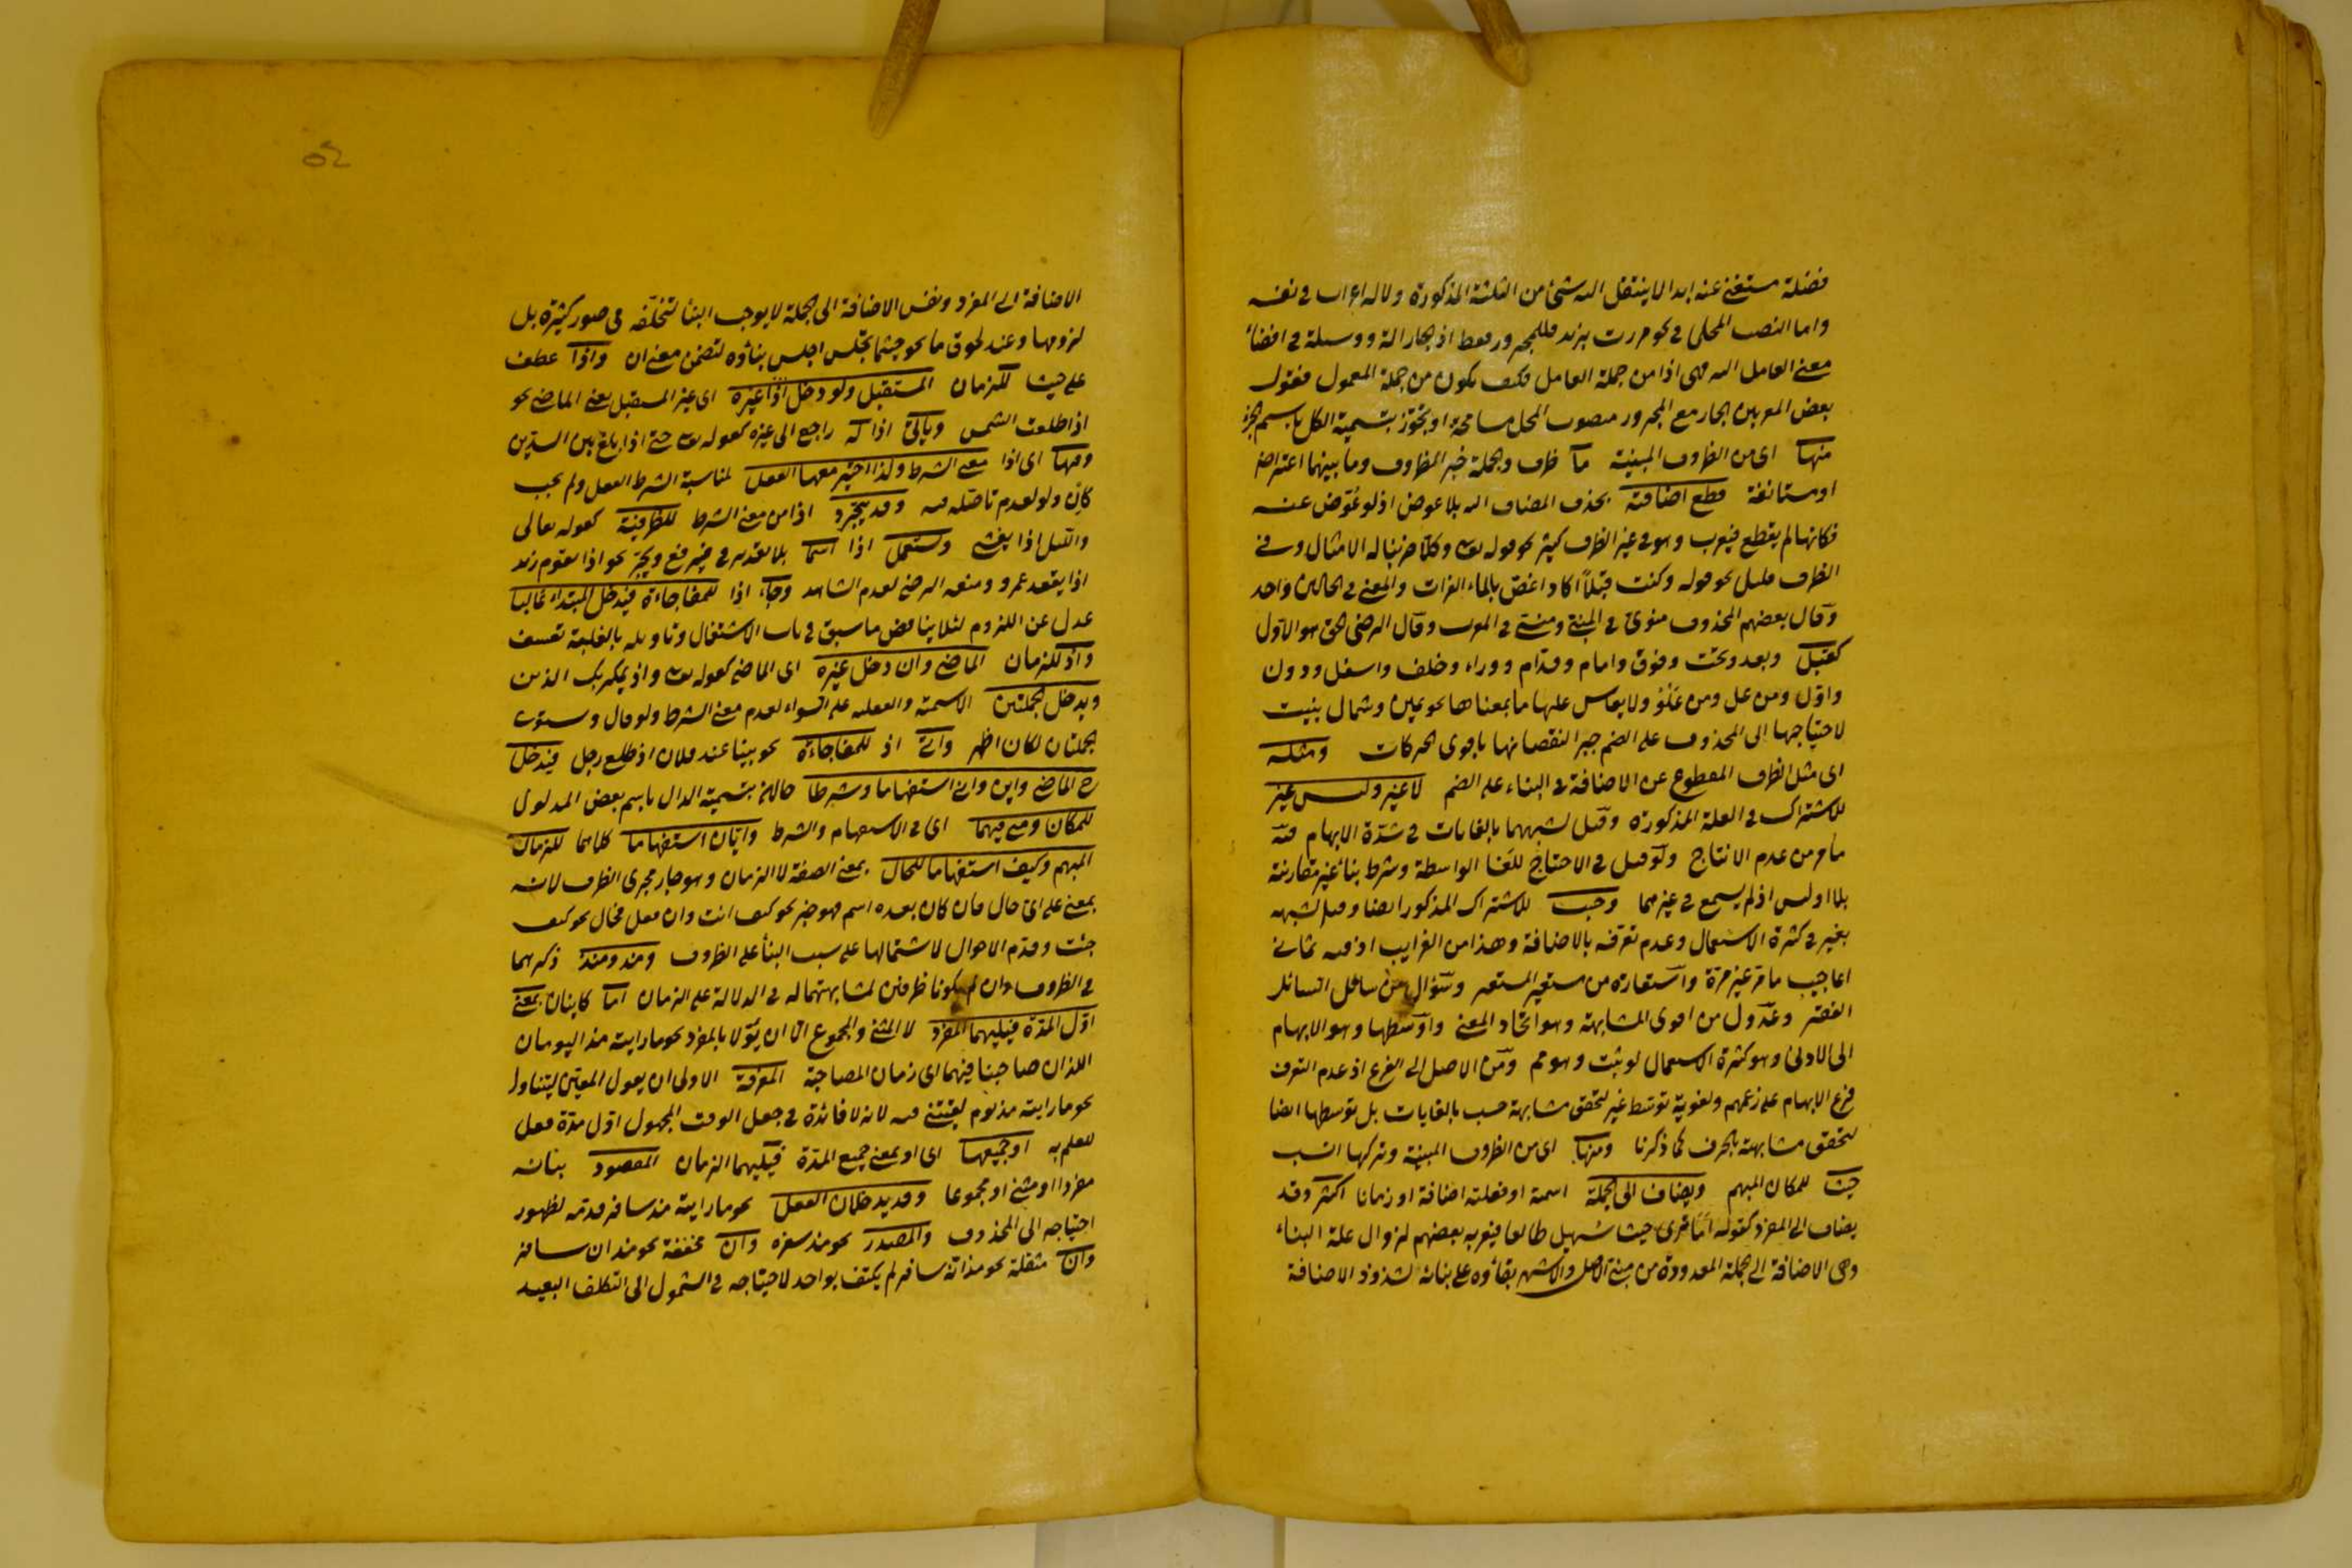 فضلة مستغنى عنه ابدا لا ينتقل اليه شئ من الثلثة المذكورة ولا له اعراب في نفسه
واما النصب المحلى في نحو مررت بزيد فللمجرور فقط اذ الجار آلة ووسيلة في افضاء
معنى العامل اليه فهى اذا من جملة العامل فكيف يكون من جملة المعمول فقول
بعض المعربين الجار مع المجرور منصوب المحل مسامحة او تجوّز بتسمية الكل باسم الجزء
منها اى من الظروف المبنية ما ظرف والجملة خبر الظروف وما بينهما اعتراض
او مستانفة قطع اضافته بحذف المضاف اليه بلا عوض اذ لو عُوّض عنه
فكانها لم يقطع فيعرب وهو في غير الظرف كثير نحو قوله تعالى وكلا ضربنا له الامثال وفي
الظرف قليل نحو قوله وكنت قبلاً اكاد اغص بالماء الفرات والمعنى في الحالين واحد
وقال بعضهم المحذوف منوىّ في المبنى ومنسى في المعرب وقال الرضى الحق هو الاول
كقبل وبعد وتحت وفوق وامام وقدّام ووراء وخلف واسفل ودون
واوّل ومن عل ومن عَلْوُ ولا يقاس عليها ما بمعناها نحو يمين وشمال بنيت
لاحتياجها الى المحذوف على الضم جبرا لنقصانها باقوى الحركات ومثله
اى مثل الظرف المقطوع عن الاضافة في البناء على الضم لا غير وليس غير
للاشتراك في العلة المذكورة وقيل لشبههما بالغايات في شدّة الابهام فيه
ما مر من عدم الانتاج ولو قيل في الاحتياج للغا الواسطة وشرط بناء غير مقارنته
بلا او ليس اذ لم يسمع في غيرهما وحسب للاشتراك المذكور ايضا وقيل لشبهه
بغير في كثرة الاستعمال وعدم تعرّفه بالاضافة وهذا من الغرايب اذ فيه ثمانى
اعاجيب ما مر غير مرّة واستعارة من مستعير المستعير وسؤال من سائل السائل
الفقير وعدول من اقوى المشابهة وهو اتحاد المعنى واوسطها وهو الابهام
الى الادنى وهو كثرة الاستعمال لو ثبت وهو مم ومن الاصل الى الفرع اذ عدم التعرف
فرع الابهام على زعمهم ولغوية توسّط غير لتحقق مشابهة حسب بالغايات بل توسطها ايضا
لتحقق مشابهته بالحرف كما ذكرنا ومنها اى من الظروف المبنية وتركها انسب
حيث للمكان المبهم ويضاف الى الجملة اسمية او فعلية اضافة او زمانا اكثر وقد
يضاف الى المفرد كقوله اما ترى حيث سهيل طالعا فيعربه بعضهم لزوال علة البناء
وهى الاضافة الى الجملة المعدودة من مبنى الاصل والاشهر بقاؤه على بنائه لشذوذ الاضافة
الاضافة الى المفرد ونفس الاضافة الى الجملة لا يوجب البنأ لتخلّفه في صور كثيرة بل
لزومها وعند لحوق ما نحو حيثما تجلس اجلس بناؤه لتضمن معنى ان واذا عطف
على حيث للزمان المستقبل ولو دخل اذا غيره اى غير المستقبل يعنى الماضى نحو
اذا طلعت الشمس ويأتى اذا له راجع الى غيره كقوله تعالى حتى اذا بلغ بين السدّين
وفيها اى اذا معنى الشرط ولذا اختير معها الفعل لمناسبة الشرط الفعل ولم يجب
كان ولو لعدم تاصّله فيه وقد يتجرّد اذا من معنى الشرط للظرفية كقوله تعالى
والليل اذا يغشى ويستعمل اذا اسما بلا تقدير في خبر رفع وجرّ نحو اذا يقوم زيد
اذا يقعد عمرو ومنعه الرضى لعدم الشاهد وجاء اذا للمفاجاءة فيدخل المبتداء غالبا
عدل عن اللزوم لئلا يناقض ما سبق في باب الاشتغال وتاويله بالغلبة تعسف
واذ للزمان الماضى وان دخل غيره اى الماضى كقوله تعالى واذ يمكر بك الذين
ويدخل الجملتين الاسمية والفعلية على السواء لعدم معنى الشرط ولو قال ويستوى
الجملتان لكان اظهر واتى اذ للمفاجاءة نحو بينا عند فلان اذ طلع رجل فيدخل
ح الماضى واين وانى استفهاما وشرطا حالان بتسمية الدال باسم بعض المدلول
للمكان ومتى فيهما اى في الاستفهام والشرط وايّان استفهاما كلاهما للزمان
المبهم وكيف استفهاما للحال بمعنى الصفة لا الزمان وهو جار مجرى الظرف لانه
بمعنى على اىّ حال فان كان بعده اسم فهو خبر نحو كيف انت وان فعل فحال نحو كيف
جئت وقدّم الاحوال لاشتمالها على سبب البنأ على الظروف ومذ ومنذ ذكرهما
في الظروف وان لم يكونا ظرفين لمشابهتهما له في الدلالة على الزمان اما كائنان بمعنى
اوّل المدّة فيليهما المفرد لا المثنى والمجموع الّا ان يؤولا بالمفرد نحو ما رايته مذ اليومان
اللذان صاحبنا فيهما اى زمان المصاحبة المعرفة الاولى ان يقول المعيّن ليتناول
نحو ما رايته مذ يوم لقيتنى فيه لانه لا فائدة في جعل الوقت المجهول اوّل مدّة فعل
للعلم به او جميعها اى او بمعنى جميع المدّة فيليهما الزمان المقصود بيانه
مفردا او مثنى او مجموعا وقد يدخلان الفعل نحو ما رايته منذ سافر قدمه لظهور
احتياجه الى المحذوف والمصدر نحو منذ سفره وان مخففة نحو منذ ان سافر
وانّ مثقلة نحو مذ انّه سافر لم يكتف بواحد لاحتياجه في الشمول الى التكلف البعيد